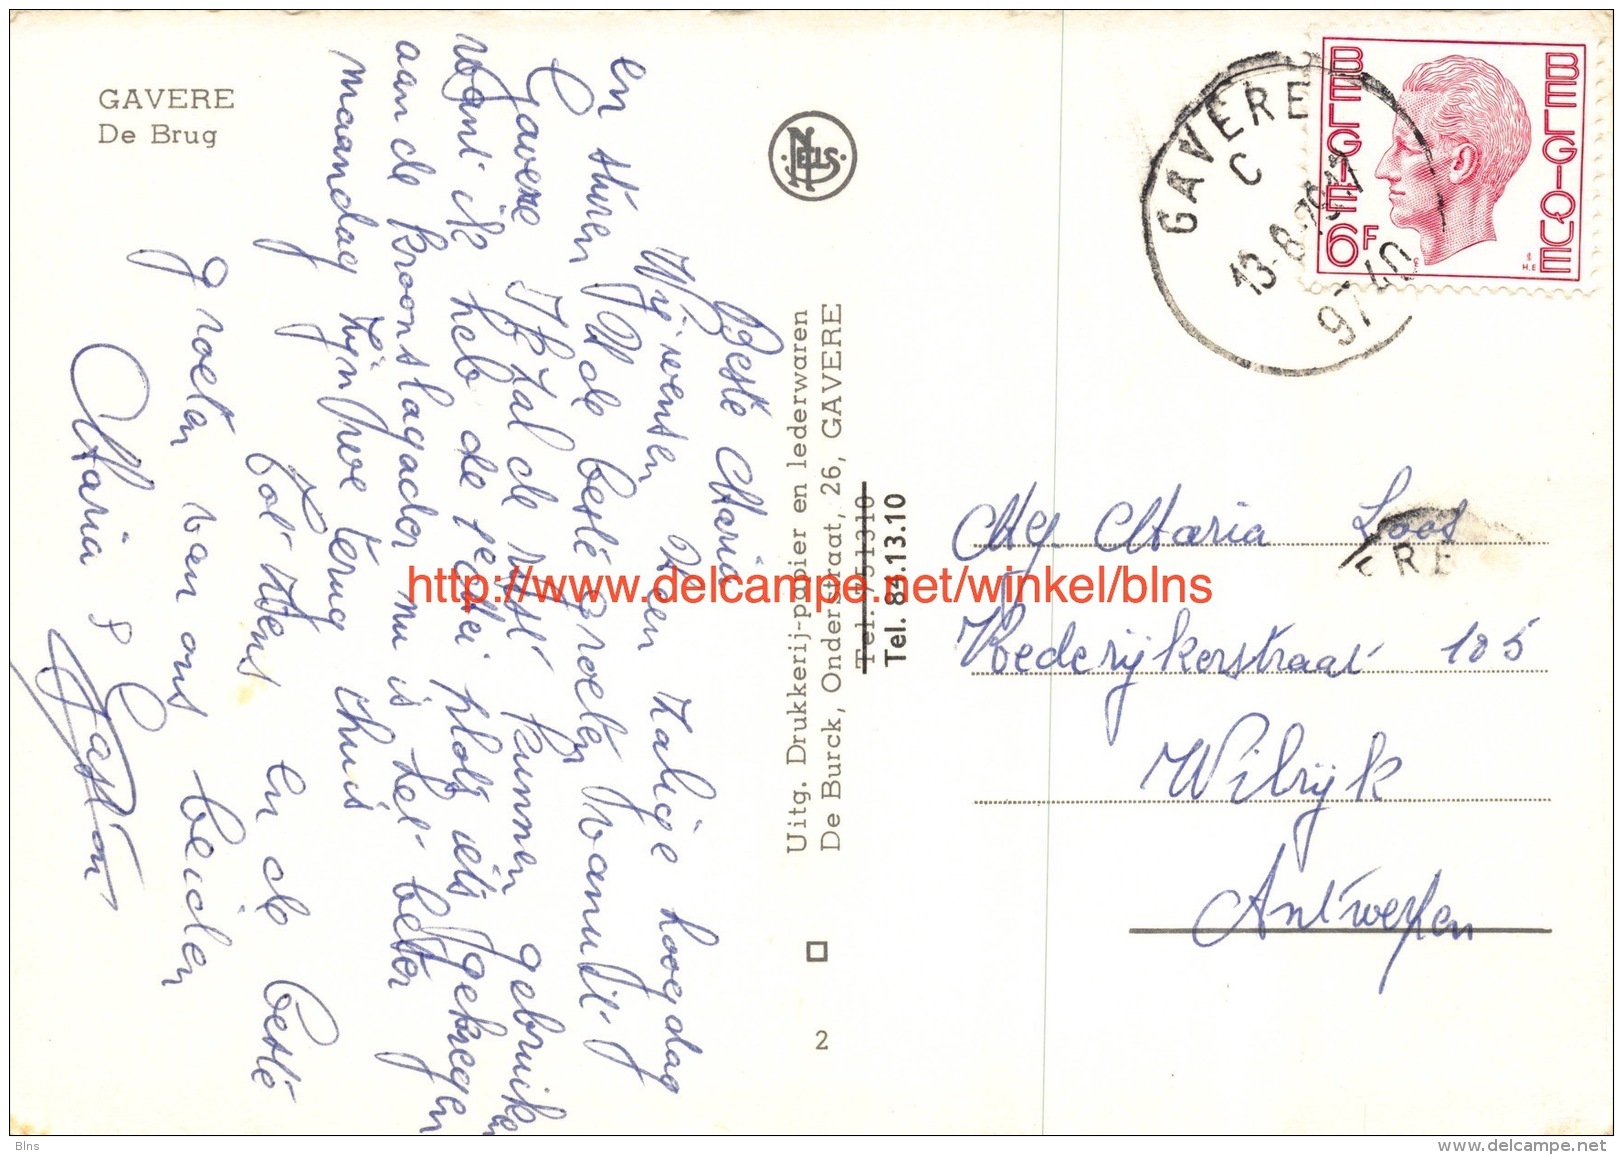 GAVERE
De Brug
Beste Maria
Wij wensen U een zalige hoogdag
en sturen U de beste groeten vanuit
Gavere Ik zal de rust kunnen gebruiken
want ik heb de zei plots iets gekregen
aan de kroonslagader nu is het beter
maandag zijn we terug thuis
Tot ziens en de beste
groeten van ons beiden
Maria & Gaston
Uitg. Drukkerij-papier en lederwaren
De Burck, Onderstraat, 26, GAVERE
Tel. 751310
Tel. 84.13.10
2
NELS
GAVERE
C
13-8-
9740
BELGIE BELGIQUE
6F
Mej Maria Loos
Kederijkerstraat 105
Wilrijk
Antwerpen
ERE
http://www.delcampe.net/winkel/blns
Blns
www.delcampe.net